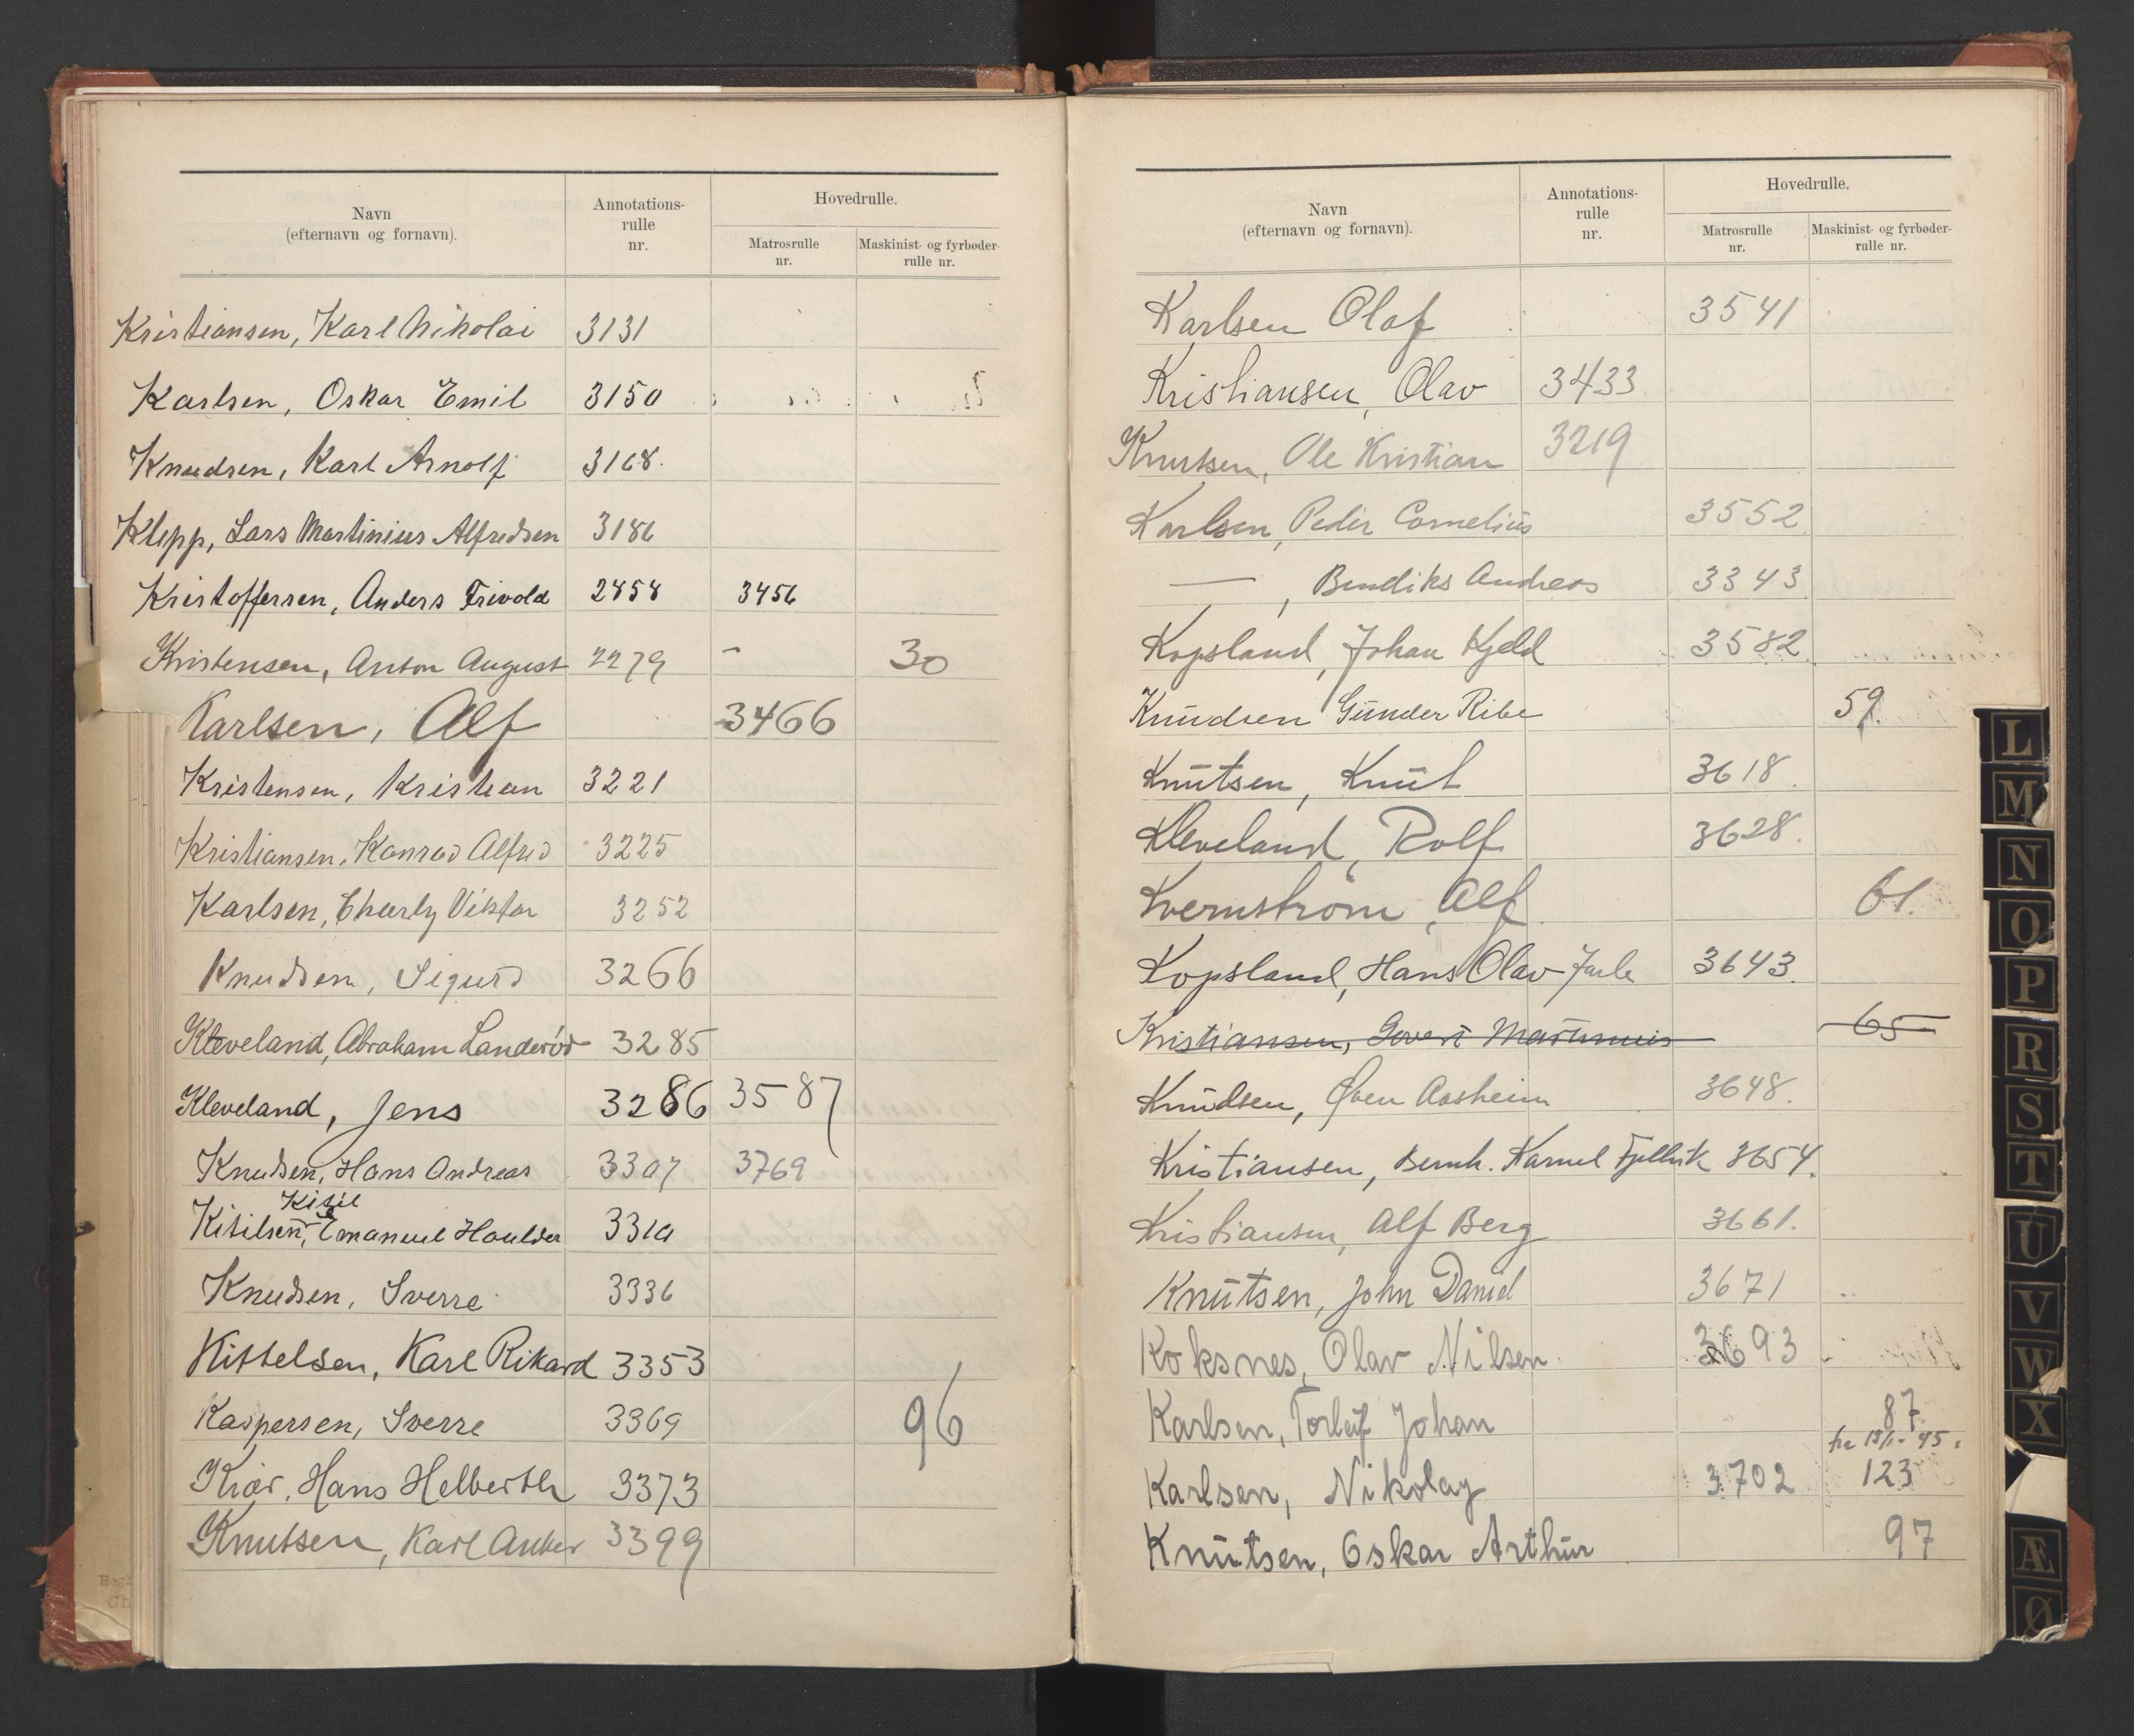 Navn
(efternavn og fornavn).
Annotations-
rulle
nr.
Hovedrulle.
Matrosrulle
nr.
Maskinist- og fyrbøder-
rulle nr.
Kristiansen, Karl Nikolai 3131
Karlsen, Oskar Emil 3150
Knudsen, Karl Arnolf 3168.
Klepp, Lars Martinius Alfredsen 3186
Kristoffersen, Anders Trivold 2454 3456
Kristensen, Anton August 2279 - 30
Karlsen, Alf 3466
Kristensen, Kristian 3221
Kristiansen, Konrad Alfred 3225
Karlsen, Charly Viktor 3252
Knudsen, Sigurd 3266
Kleveland, Abraham Landerød 3285
Kleveland, Jens 3286 3587
Knudsen, Hans Andreas 3307 3769
Kitil
Kitilsen, Emanuel Houlder 3310
Knudsen, Sverre 3336
Kittelsen, Karl Rikard 3353
Kaspersen, Sverre 3369 96
Kiær, Hans Helberth 3373
Knutsen, Karl Anker 3399
Navn
(efternavn og fornavn).
Annotations-
rulle
nr.
Hovedrulle.
Matrosrulle
nr.
Maskinist- og fyrbøder-
rulle nr.
Karlsen Olaf 3541
Kristiansen, Olav 3433
Knutsen, Ole Kristian 3219
Karlsen, Peder Cornelius 3552.
— , Bendiks Andreas 3343.
Kopsland, Johan Kjeld 3582.
Knudsen Gunder Ribe 59.
Knutsen, Knut 3618.
Kleveland, Rolf 3628.
Kvernstrøm, Alf 61.
Kopsland, Hans Olav Jarle 3643.
Kristiansen, Govert Martinius 65
Knudsen, Øven Aasheim 3648.
Kristiansen, Bernh. Karnel Fjellvik 3654.
Kristiansen, Alf Berg 3661.
Knutsen, John Daniel 3671
Koksnes, Olav Nilsen 3693
Karlsen, Torleif Johan 87
fra 45.
Karlsen, Nikolay 3702 123
Knutsen, Oskar Arthur 97
L
M
N
O
P
R
S
T
U
V
W
X
Æ
Ø